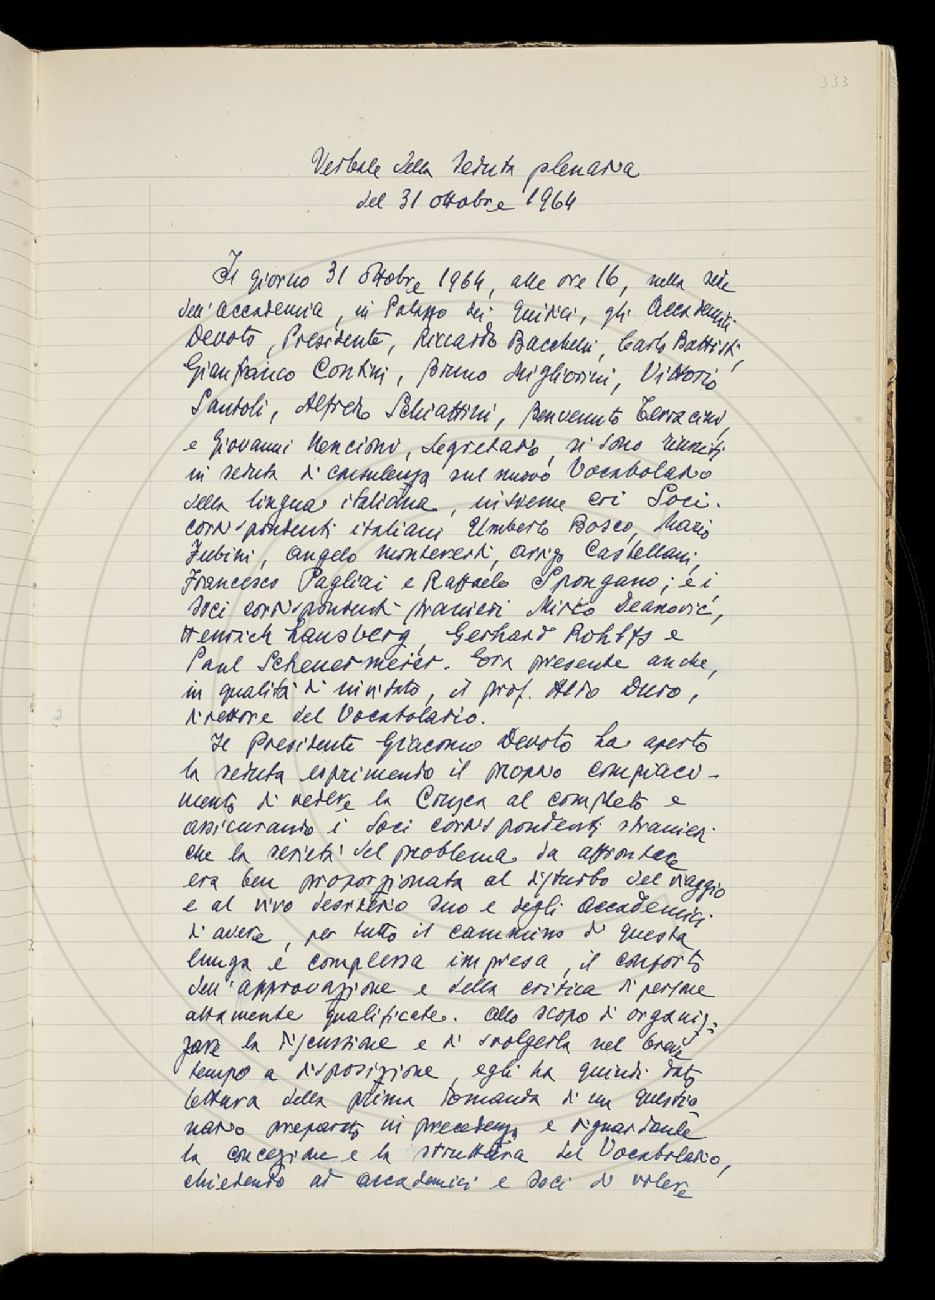 333
Verbale della seduta plenaria
del 31 ottobre 1964
Il giorno 31 ottobre 1964, alle ore 16, nella sede
dell'Accademia, in Palazzo dei Giudici, gli Accademici
Devoto, Presidente, Riccardo Bacchelli, Carlo Battisti,
Gianfranco Contini, Bruno Migliorini, Vittorio
Santoli, Alfredo Schiaffini, Benvenuto Terracini,
e Giovanni Nencioni, Segretario, si sono riuniti
in seduta di consulenza sul nuovo Vocabolario
della lingua italiana, insieme coi Soci
corrispondenti italiani Umberto Bosco, Mario
Fubini, Angelo Monteverdi, Arrigo Castellani,
Francesco Pagliai e Raffaele Spongano; e i
Soci corrispondenti stranieri Mirko Deanović,
Heinrich Lausberg, Gerhard Rohlfs e
Paul Scheuermeier. Era presente anche,
in qualità di invitato, il prof. Aldo Duro,
direttore del Vocabolario.
Il Presidente Giacomo Devoto ha aperto
la seduta esprimendo il proprio compiaci-
mento di vedere la Crusca al completo e
assicurando i Soci corrispondenti stranieri
che la serietà del problema da affrontare
era ben proporzionata al disturbo del viaggio
e al vivo desiderio suo e degli Accademici
di avere, per tutto il cammino di questa
lunga e complessa impresa, il conforto
dell'approvazione e della critica di persone
altamente qualificate. Allo scopo di organiz-
zare la discussione e di svolgerla nel breve
tempo a disposizione, egli ha quindi dato
lettura della prima domanda di un questio
nario preparato in precedenza e riguardante
la concezione e la struttura del Vocabolario,
chiedendo ad accademici e soci di volere